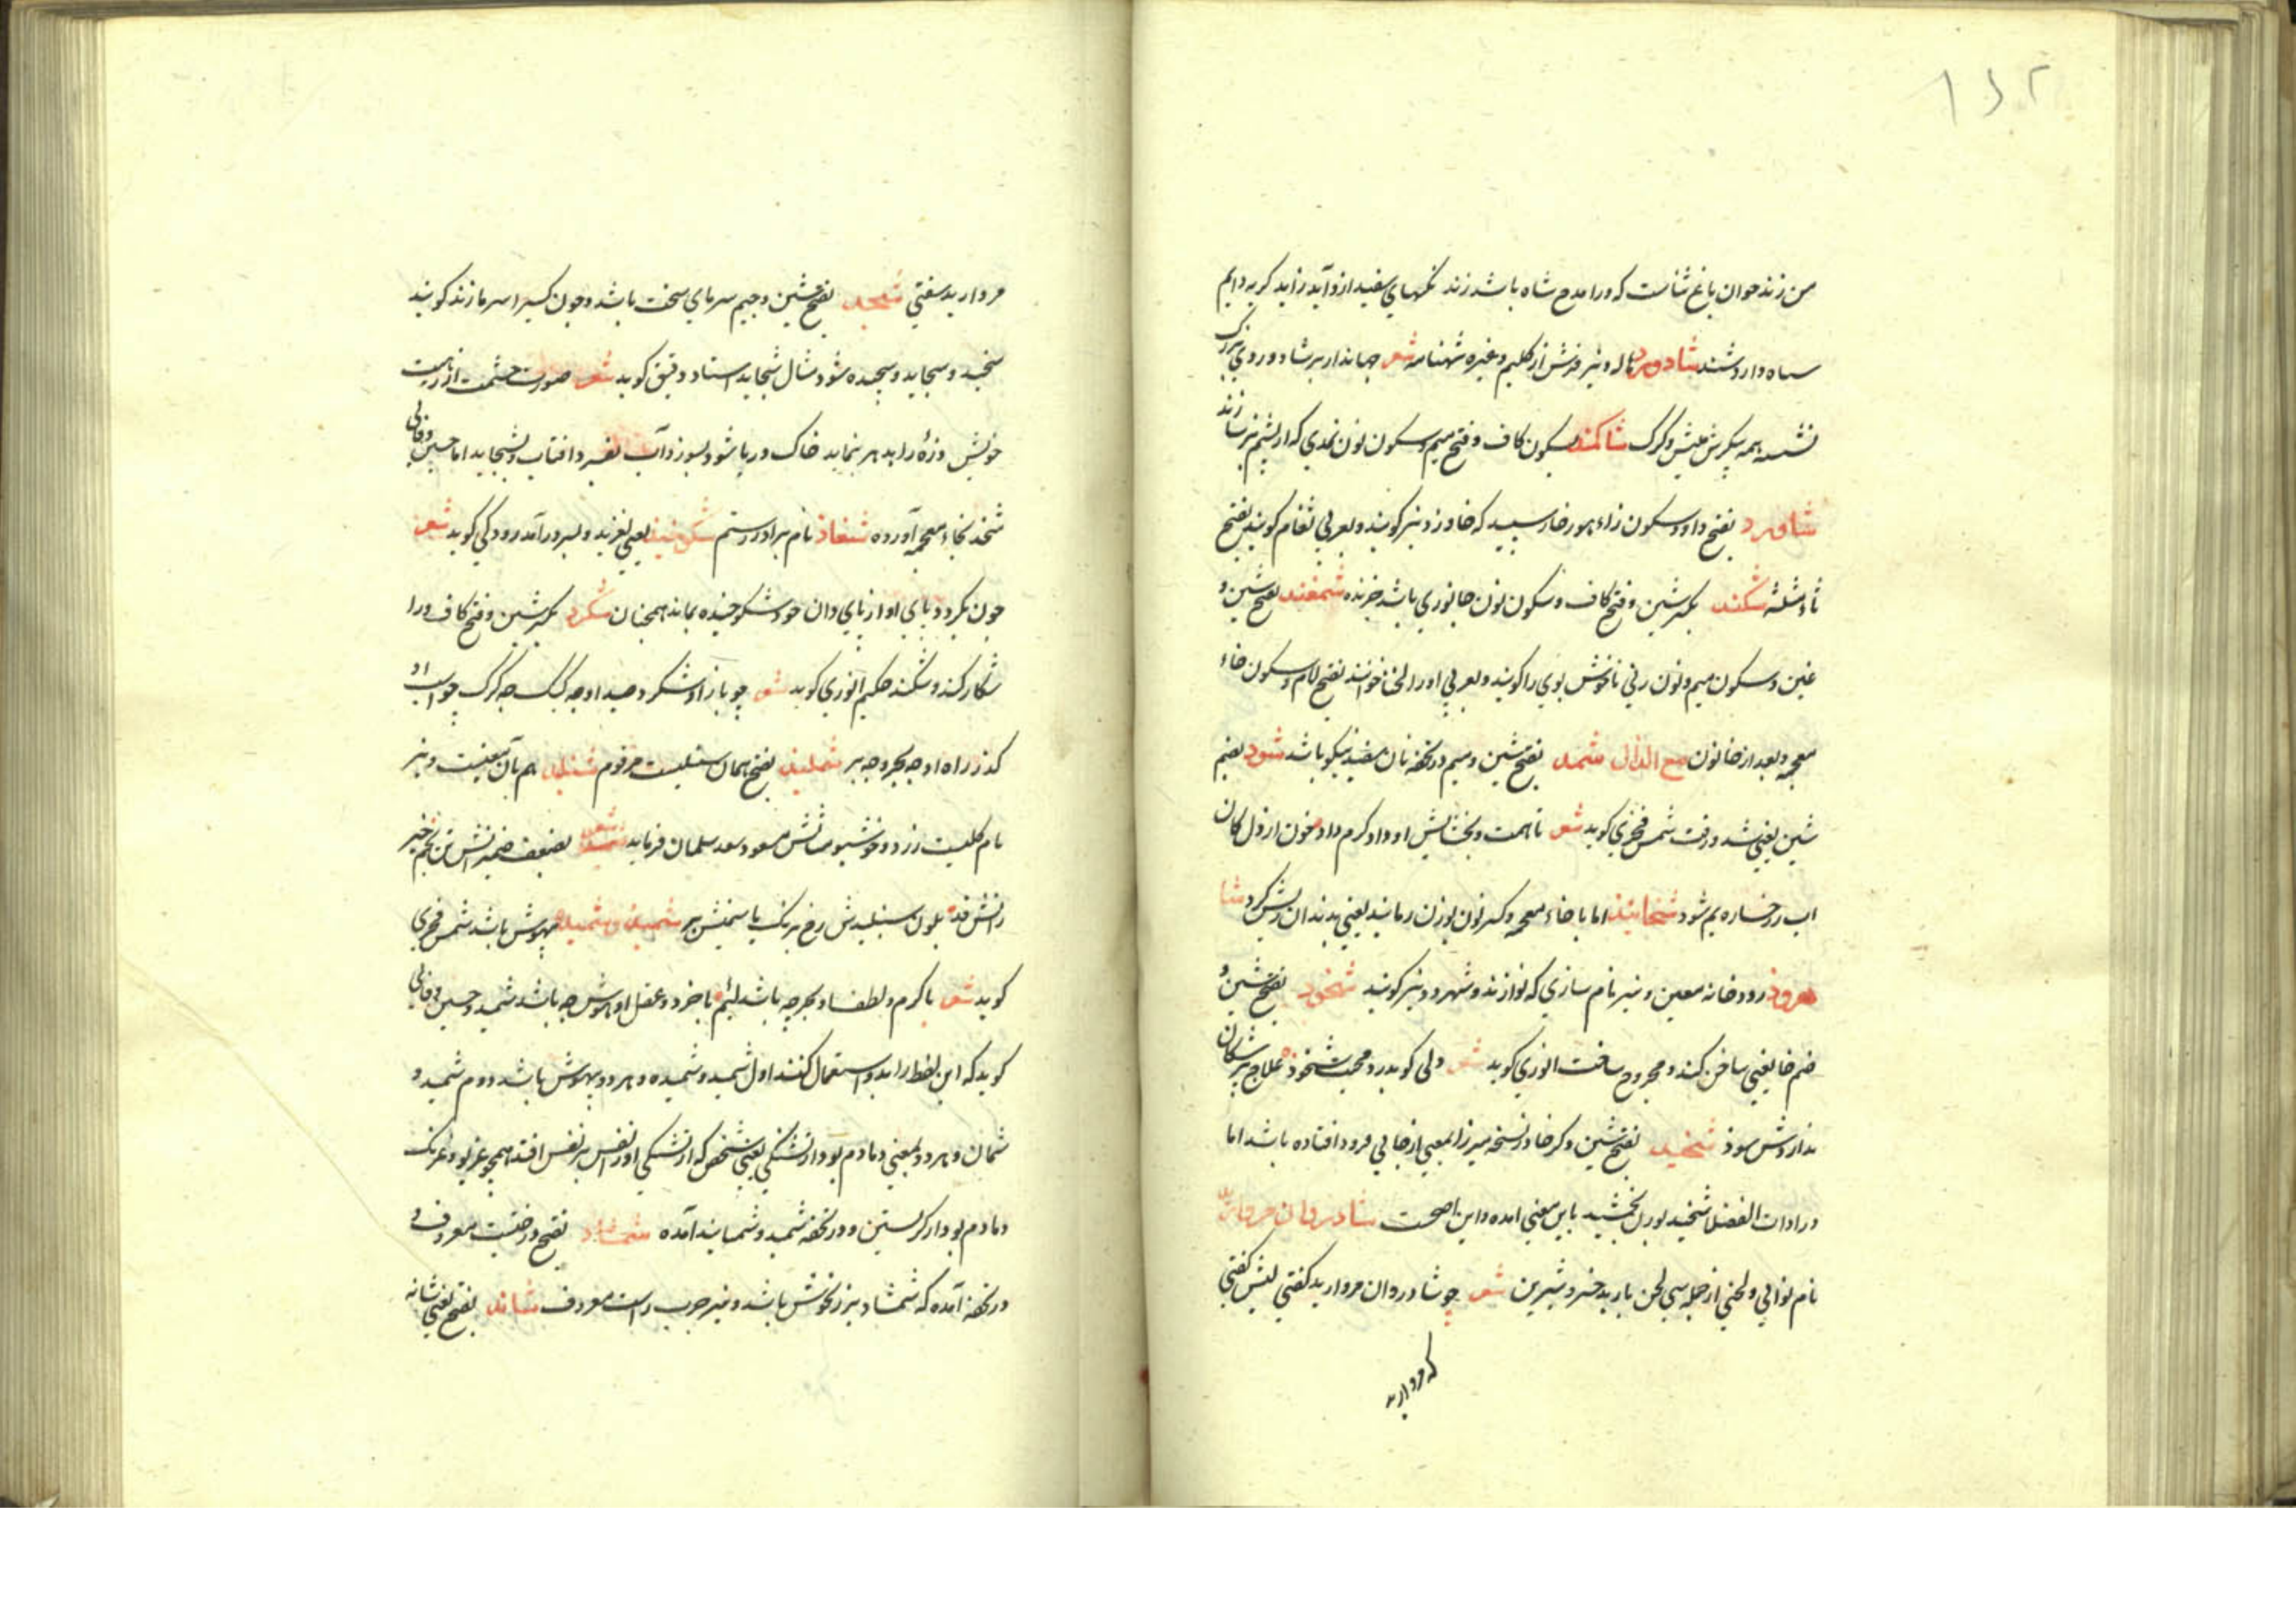 ۱۶۲
من زندخوان باغ ثناست که ورا مدح شاه باشد زند نکتهای سفید ازو آید زاید کریه دایم
سیاه دارد شند شادورد هاله و نیز فرش از کلیم و غیره شهنامه شعر جهاندار بر شادورد بزرک
نشسته همه پیکرش میش و کرک شاکمند بسکون کاف و فتح میم و سکون نون نمدی که از پشم بز سازند
شاوورد بفتح واو و سکون زاء هوز خار سپید که خاوزد نیز کویند و بعربی ثغام کویند بفتح
ثاء مثلثه شکند بکسر شین و فتح کاف و سکون نون جانوری باشد خزنده شمغند بفتح شین و
غین و سکون میم و نون زنی ناخوش بوی را کویند و بعربی او را لخنا خوانند بفتح لام و سکون خاء
معجمه و بعد از خا نون مع الذال شمد بفتح شین و میم در تحفه نان سفید نیکو باشد شود بضم
شین یعنی شد و رفت شمس فخری کوید شعر تا همت و بخشایش او داد کرم داد خون از دل کان
اب رخساره یم شود شخانید اما با خاء معجمه و کسر نون بوزن رمانید یعنی بدندان ریش کرد شا
هرود رودخانه معین و نیز نام سازی که نوازند و شهرود نیز کویند شخود بفتح شین و
ضم خا یعنی بناخن کند و مجروح ساخت انوری کوید شعر دلی کوید درد محبت شخوده علاج پزشکان
ندارش سود شخید بفتح شین و کسر خا در نسخه میرزا بمعنی از جایی فرود افتاده باشد اما
در ادات الفضلا شخید بوزن بخشید باین معنی امده و این اصحست شادروان مروارید
نام نوایی و لحنی از جمله سی لحن باربد خسرو شیرین شعر چو شادروان مروارید کفتی لبش کفتی
که مروارید
مروارید سفتی شجد بفتح شین و جیم سرمای سخت باشد و چون کسی را سرما زند کویند
شجید و شجاید و شجیده شود مثال شجاید استاد دقیقی کوید شعر صورت خشمت از زهیبت
خویش ذره را بدهر بنماید خاک دریا شود بسوزد آب بفسرد افتاب و بشجاید اما حسین وفایی
شخد بخاء معجمه آورده شغاد نام برادر رستم شکوخید یعنی لغزید و بسر درآمد رودکی کوید شعر
چون بکردد پای او از پای دان خود شکوخیده بماند همچنان شکرد بکسر شین و فتح کاف و را
شکار کند و شکند حکیم انوری کوید شعر چو باز او شکرد صید او چه کبک چه کرک چو اسب او
کذرد راه او چه بحر و چه بر شملید بفتح همان سنبلیت مرقوم شنبلید هم بآن معنیست و نیز
نام کلیست زرد و خوشبو مثالش مسعود سعد سلمان فرماید شعر
رانش قد بلون سنبلیدش رخ برنک یاسمینش بر شمید و شمیده بیهوش باشد شمس فخری
کوید شعر با کرم و لطف او بحر چه باشد لئیم با خرد و عقل او هوش چه باشد شمید و حسین وفایی
کوید که این لفظ را بدو استعمال کنند اول شمید و شمیده و هر دو بیهوش باشد دوم شمید و
شمان و هر دو بمعنی دمادم بود از تشنکی یعنی شخص که از تشنکی او را نفس بر نفس افتد همچو غریو و غرنک
دمادم بود از کریستن و در تحفه شمید و شمانید آمده شمشاد بفتح درختیست معروف و
در تحفه آمده که شمشاد مرزنکوش باشد و نیز چوب راست معروف شاند بفتح یعنی شانه